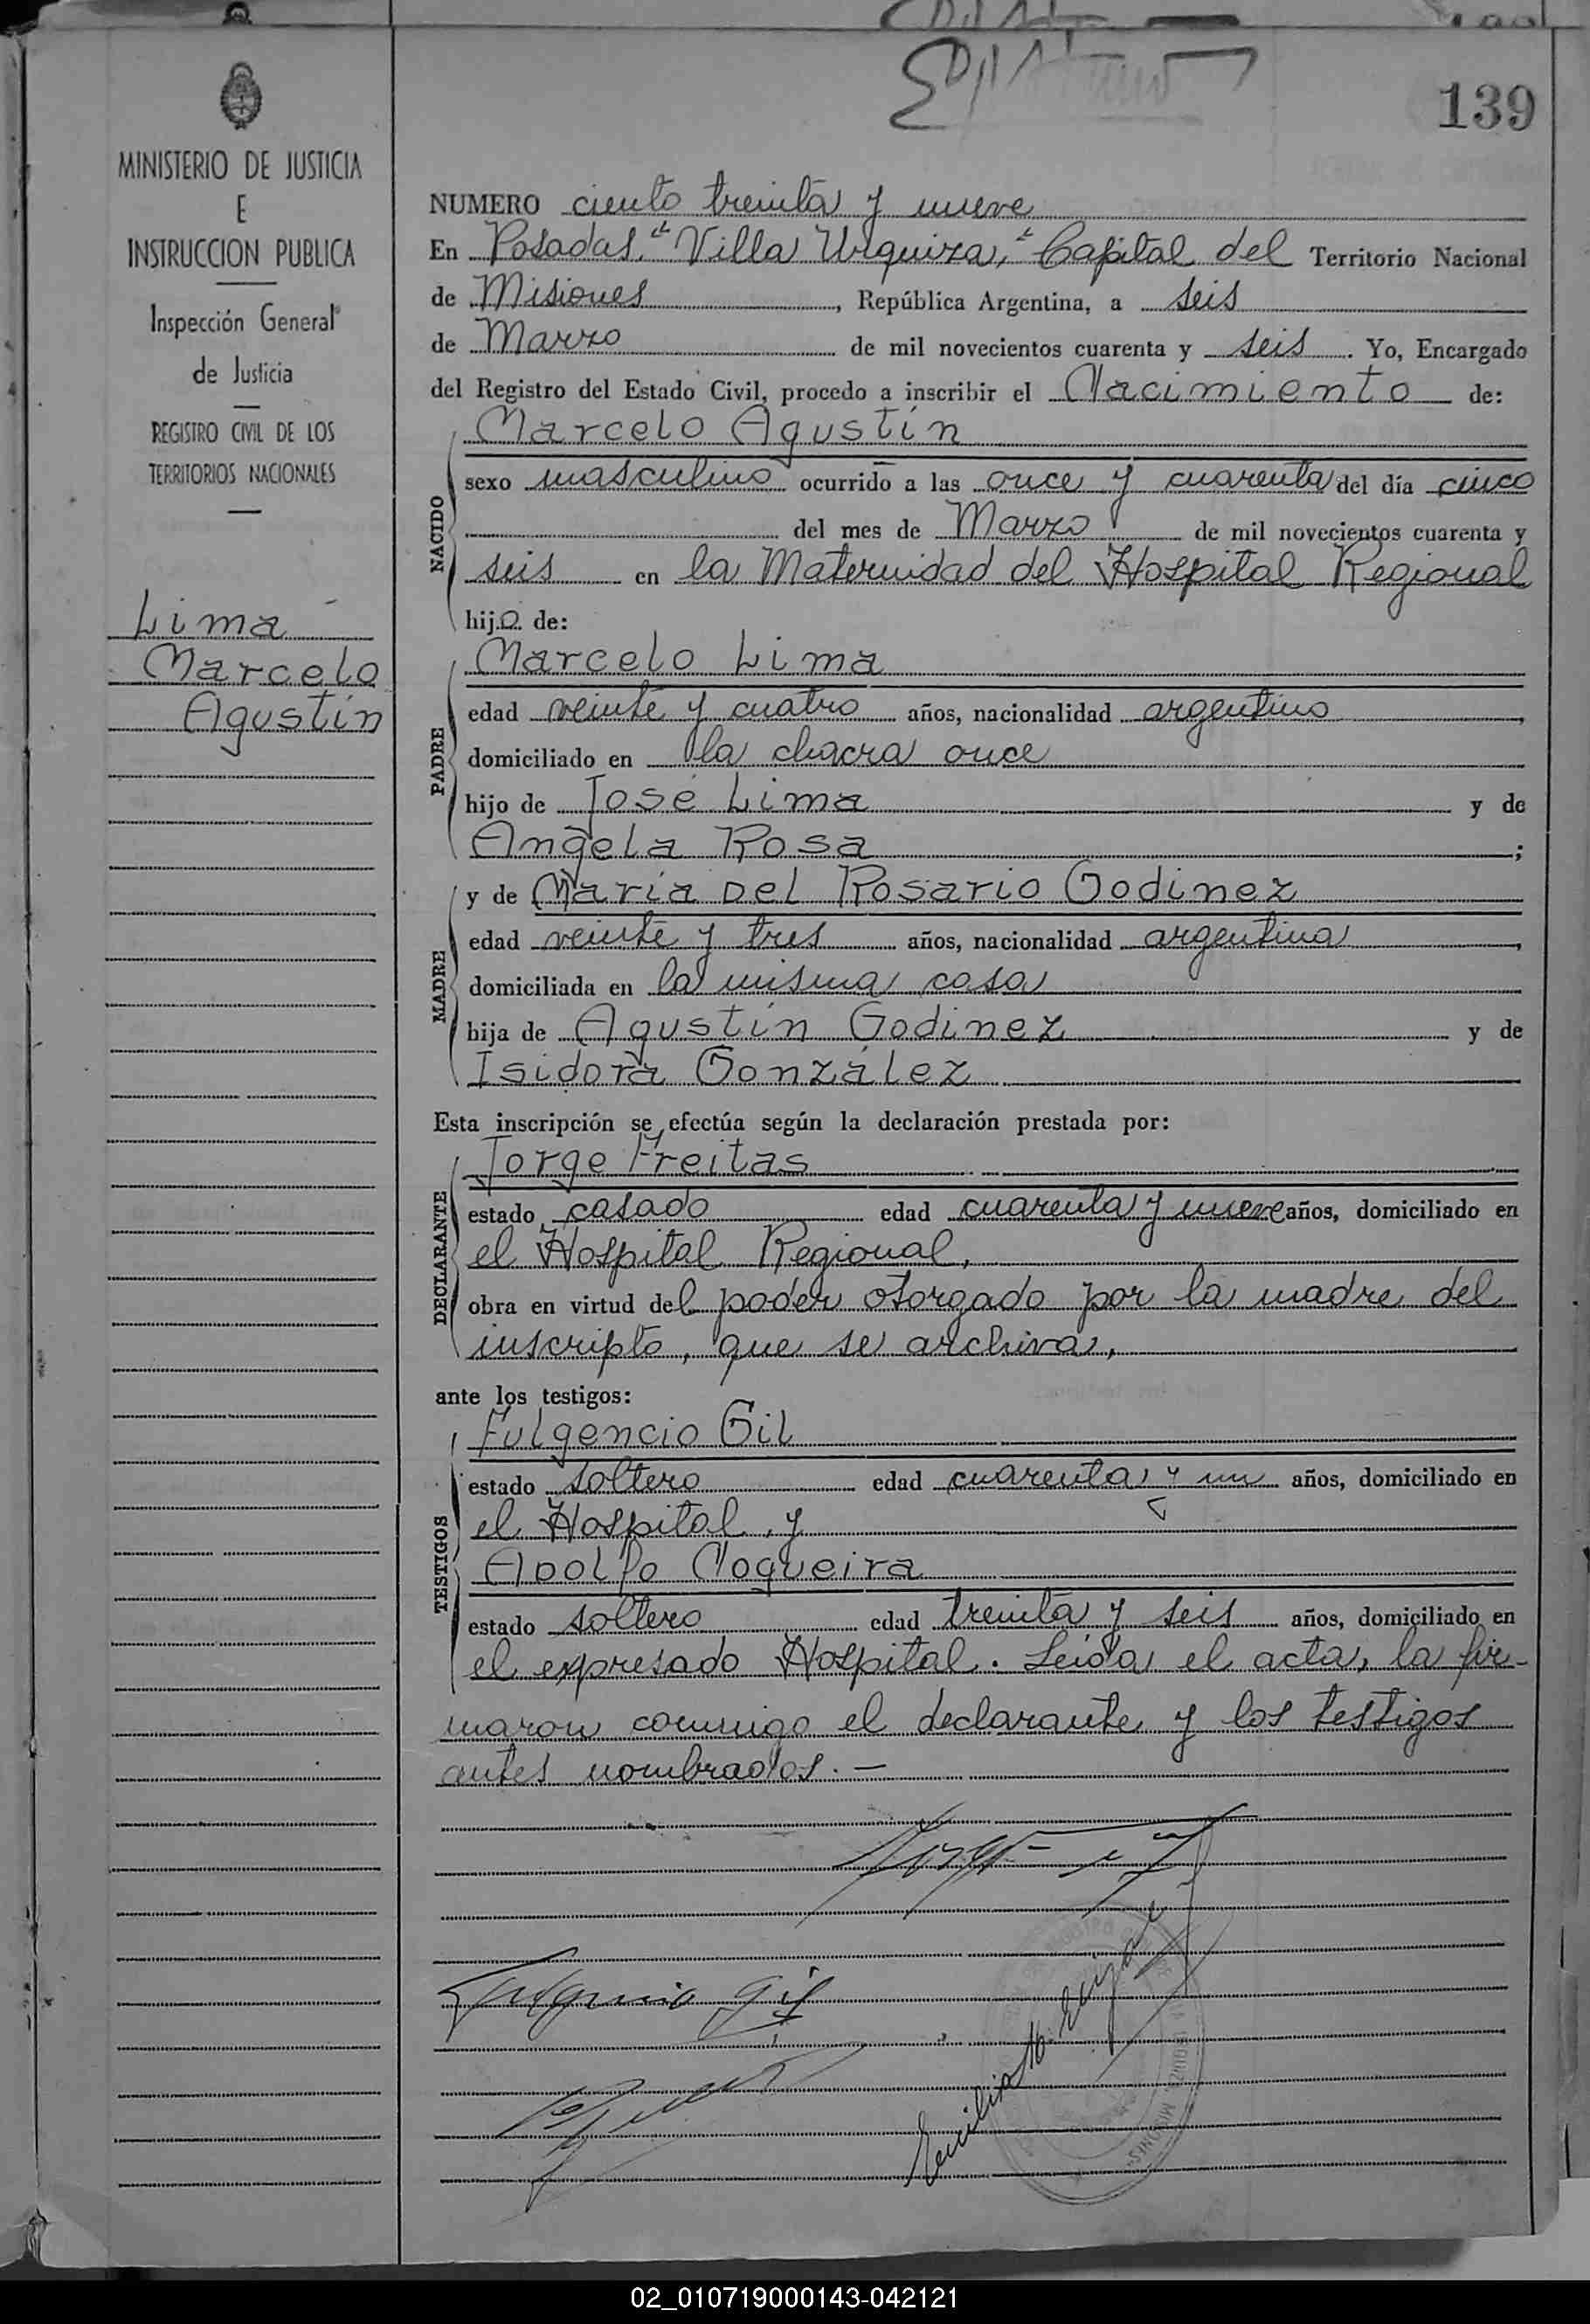 139
MINISTERIO DE JUSTICIA
E
INSTRUCCION PUBLICA
Inspección General
de Justicia
REGISTRO CIVIL DE LOS
TERRITORIOS NACIONALES
Lima
Marcelo
Agustín
NUMERO ciento treinta y nueve
En Posadas, "Villa Urquiza," Capital del Territorio Nacional
de Misiones, República Argentina, a seis
de Marzo de mil novecientos cuarenta y seis. Yo, Encargado
del Registro del Estado Civil, procedo a inscribir el Nacimiento de:
Marcelo Agustín
NACIDO
sexo masculino ocurrido a las once y cuarenta del día cinco
del mes de Marzo de mil novecientos cuarenta y
seis en la Maternidad del Hospital Regional
hijo de:
Marcelo Lima
PADRE
edad veinte y cuatro años, nacionalidad argentino,
domiciliado en la chacra once
hijo de José Lima y de
Angela Rosa;
y de María Del Rosario Godinez
MADRE
edad veinte y tres años, nacionalidad argentina,
domiciliada en la misma casa
hija de Agustín Godinez y de
Isidora González
Esta inscripción se efectúa según la declaración prestada por:
Jorge Freitas
DECLARANTE
estado casado edad cuarenta y nueve años, domiciliado en
el Hospital Regional,
obra en virtud del poder otorgado por la madre del
inscripto, que se archiva,
ante los testigos:
Fulgencio Gil
TESTIGOS
estado soltero edad cuarenta y un años, domiciliado en
el Hospital, y
Adolfo Nogueira
estado soltero edad treinta y seis años, domiciliado en
el expresado Hospital. Leída el acta, la fir-
maron conmigo el declarante y los testigos
antes nombrados. —
Fulgencio Gil
02_010719000143-042121